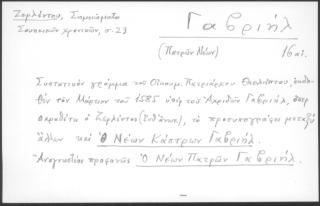 Ζερλέντου, Σημειώματα
Σουηδικῶν χρονικῶν, σ. 23
Γαβριήλ
(Πατρῶν Νέων)
16 αἰ.
Συστατικὸν γράμμα τοῦ Οἰκουμ. Πατριάρχου Θεολήπτου, ἐκδο-
θὲν τὸν Μάρτιον τοῦ 1585 ὑπὲρ τοῦ Ἀχριδῶν Γαβριήλ, ὅπερ
ὁ Ζερλέντης (ἔνθ' ἀνωτ.), τὸ προσυπογράφει μεταξὺ
ἄλλων καὶ Ὁ Νέων Κάστρων Γαβριήλ.
Ἀναγνωστέον προφανῶς Ὁ Νέων Πατρῶν Γαβριήλ.